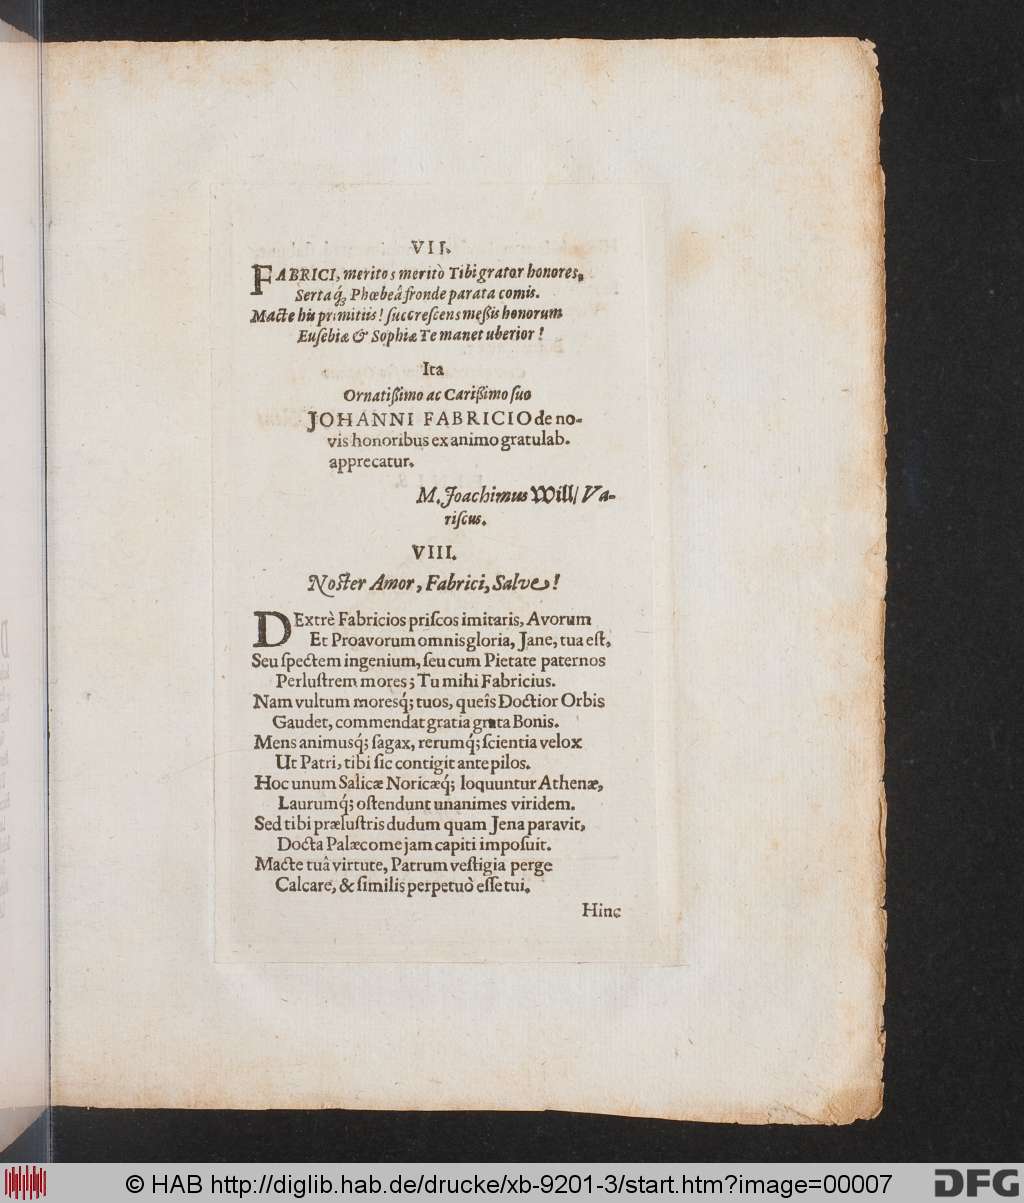 VII.
FABRICI, meritos meritò Tibi grator honores,
Sertaq́; Phœbeâ fronde parata comis.
Macte his primitiis! succrescens meßis honorum
Eusebiæ & Sophiæ Te manet uberior!
Ita
Ornatißimo ac Carißimo suo
JOHANNI FABRICIO de no-
vis honoribus ex animo gratulab.
apprecatur.
M. Joachimus Will/ Va-
riscus.
VIII.
Noster Amor, Fabrici, Salve!
DExtrè Fabricios priscos imitaris, Avorum
Et Proavorum omnis gloria, Jane, tua est,
Seu spectem ingenium, seu cum Pietate paternos
Perlustrem mores; Tu mihi Fabricius.
Nam vultum moresq́; tuos, queîs Doctior Orbis
Gaudet, commendat gratia grata Bonis.
Mens animusq́; sagax, rerumq́; scientia velox
Ut Patri, tibi sic contigit ante pilos.
Hoc unum Salicæ Noricæq́; loquuntur Athenæ,
Laurumq́; ostendunt unanimes viridem.
Sed tibi prælustris dudum quam Jena paravit,
Docta Palæcome jam capiti imposuit.
Macte tuâ virtute, Patrum vestigia perge
Calcare, & similis perpetuò esse tui.
Hinc
© HAB http://diglib.hab.de/drucke/xb-9201-3/start.htm?image=00007
DFG